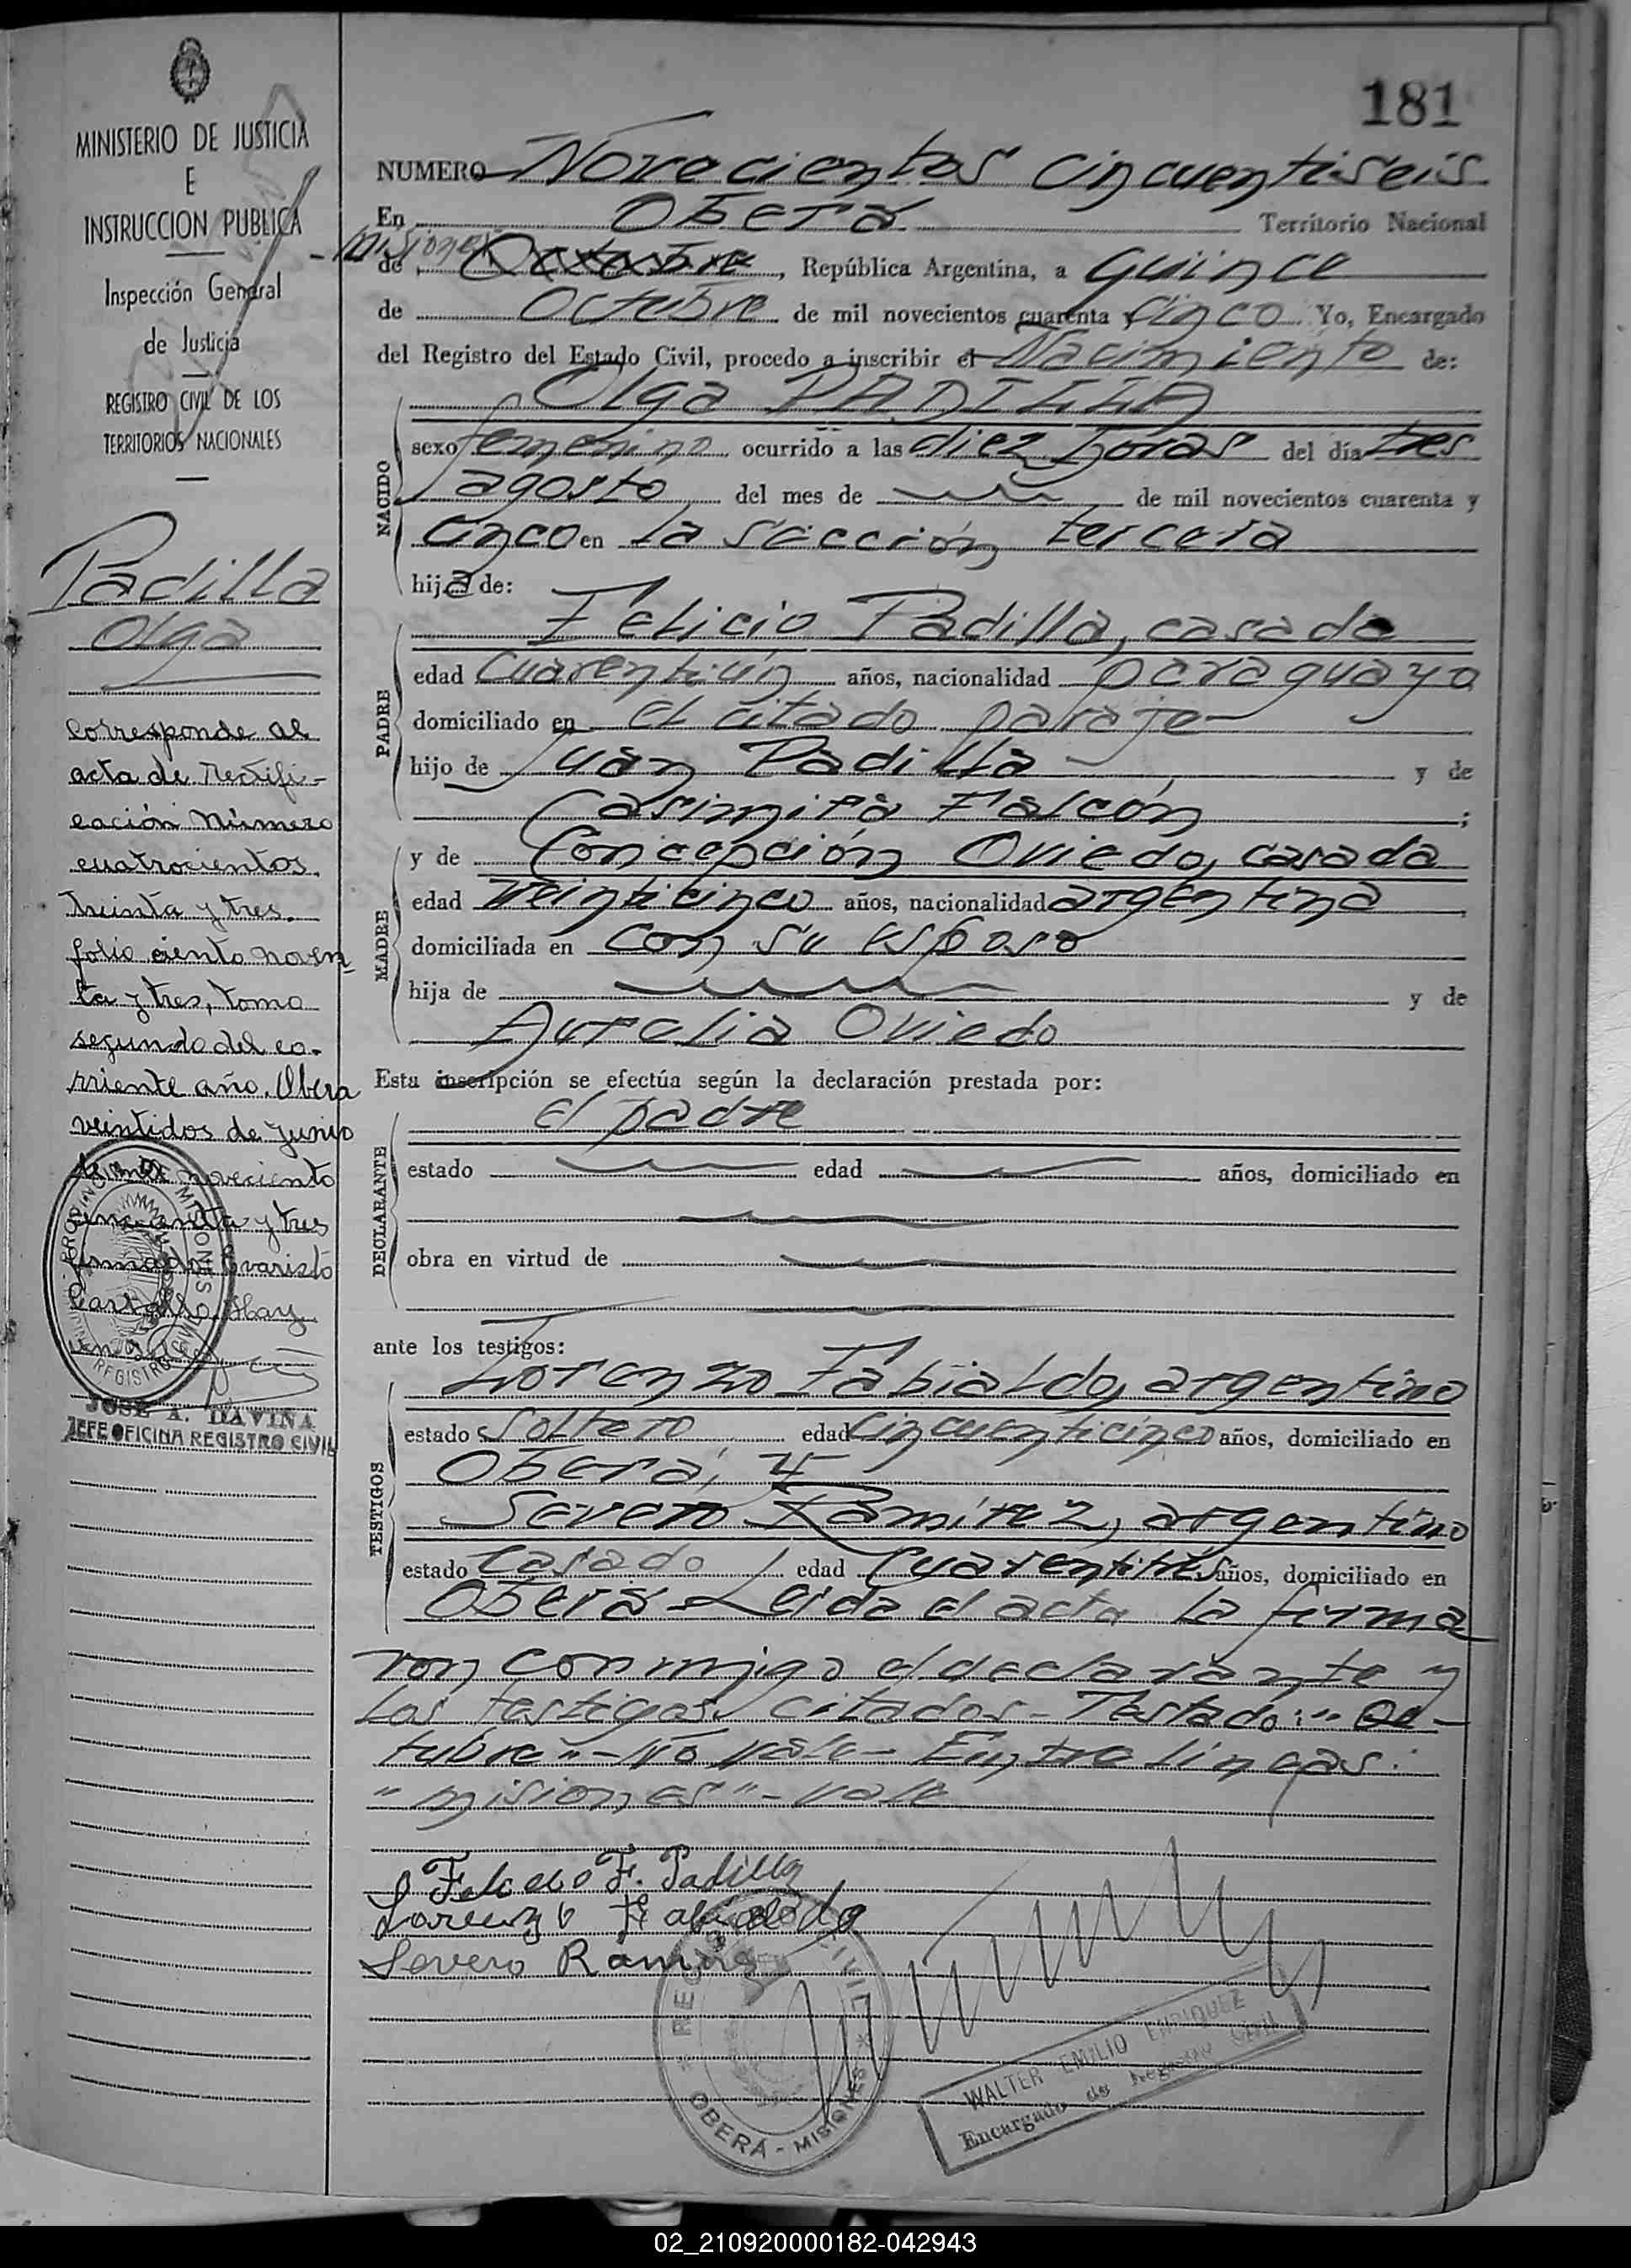 181
MINISTERIO DE JUSTICIA
E
INSTRUCCION PUBLICA
Inspección General
de Justicia
REGISTRO CIVIL DE LOS
TERRITORIOS NACIONALES
Padilla
Olga
Corresponde al
acta de rectifi-
cación Número
cuatrocientos
treinta y tres
folio ciento noven
ta y tres, tomo
segundo del co-
rriente año. Obera
veintidos de junio
de mil noveciento
cincuenta y tres
firmado Evaristo
Carvallo. Hay
un sello
PROVINCIA DE MISIONES
REGISTRO CIVIL
JOSE A. DAVIÑA
JEFE OFICINA REGISTRO CIVIL
NUMERO Novecientos cincuentiseis
En Oberá Territorio Nacional
- Misiones -
de Octubre, República Argentina, a quince
de Octubre de mil novecientos cuarenta y cinco Yo, Encargado
del Registro del Estado Civil, procedo a inscribir el Nacimiento de:
NACIDO
Olga PADILLA
sexo femenino ocurrido a las diez horas del día tres
agosto del mes de de mil novecientos cuarenta y
cinco en la sección tercera
hija de:
PADRE
Felicio Padilla, casado
edad cuarentiún años, nacionalidad paraguayo
domiciliado en el citado paraje
hijo de Juan Padilla y de
Casimira Falcón ;
MADRE
y de Concepción Oviedo, casada
edad veinticinco años, nacionalidad argentina
domiciliada en con su esposo
hija de y de
Aurelia Oviedo
Esta inscripción se efectúa según la declaración prestada por:
DECLARANTE
el padre
estado edad años, domiciliado en
obra en virtud de
ante los testigos:
TESTIGOS
Lorenzo Fabialdo, argentino
estado soltero edad cincuenticinco años, domiciliado en
Oberá, y
Severo Ramírez, argentino
estado casado edad cuarentitrés años, domiciliado en
Oberá - Leida el acta la firma
ron conmigo el declarante y
los testigos citados - Testado: "Oc-
tubre" - No vale - Entre líneas:
"misiones" - vale
F. Padilla
Lorenzo Fabialdo
Severo Ramires
REGISTRO CIVIL
OBERÁ - MISIONES
WALTER EMILIO ENRIQUEZ
Encargado de Registro Civil
02_210920000182-042943